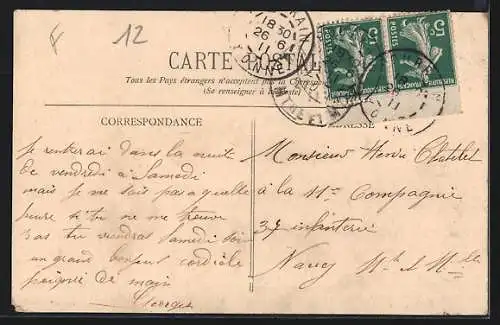 F 12
CARTE POSTALE
Tous les Pays étrangers n'acceptent pas la Correspondance
(Se renseigner à la Poste)
CORRESPONDANCE
Je rentrerai dans la nuit
de vendredi à Samedi
mais je ne sais pas a quelle
heure si tu ne me trouve
pas tu viendras Samedi soir
un grand bonjout cordiale
poignée de main
Georges
ADRESSE
Monsieur Henri Chatelet
à la 11e Compagnie
37 infanterie
Nancy Mthe & Mlle
18 30
26 6
11
YONNE
5c
POSTES
5c
POSTES